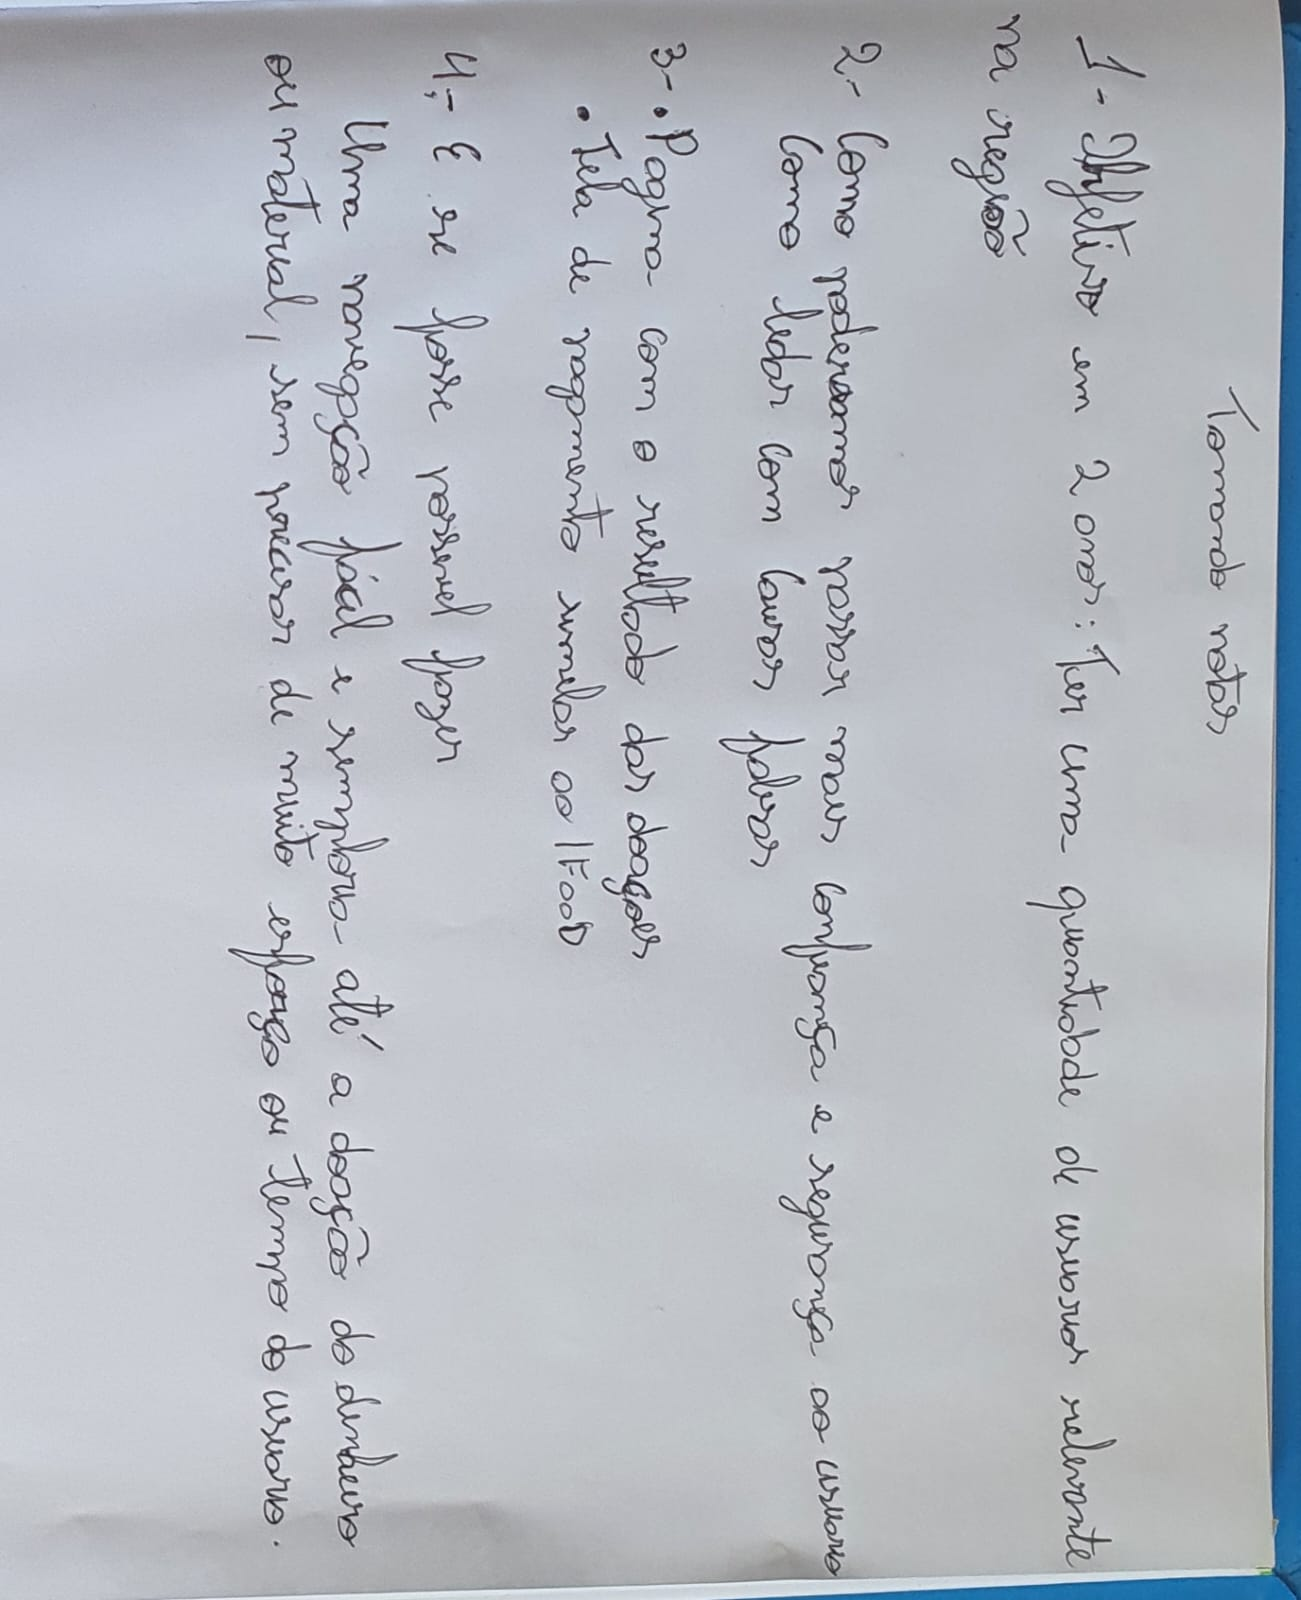 Tomando notas
1- Objetivo em 2 anos: Ter uma quantidade de usuarios relevante
na região
2- Como poderiamos passar mais confiança e segurança ao usuario
Como lidar com causas falsas
3- • Pagina com o resultado das doações
• Tela de pagamento similar ao IFOOD
4,- E se fosse possivel fazer
Uma navegação fácil e simploria até a doação do dinheiro
ou material, sem precisar de muito esforço ou tempo do usuario.